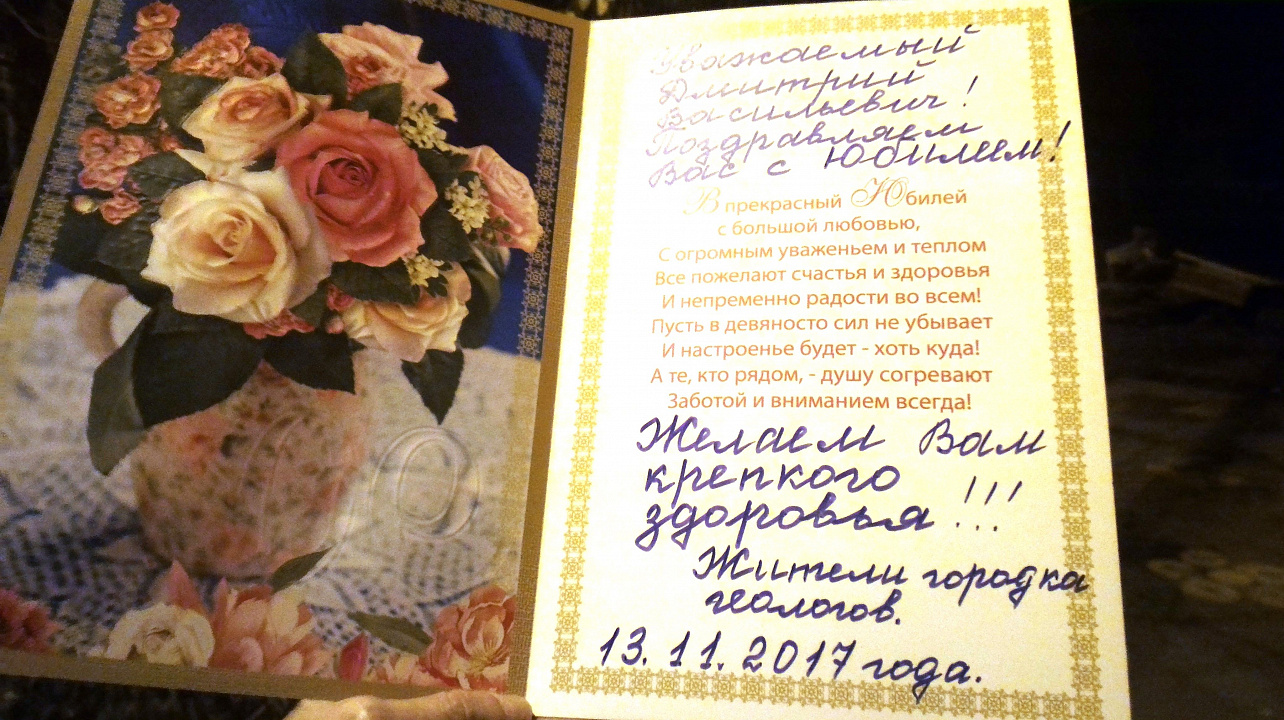 Уважаемый
Дмитрий
Васильевич!
Поздравляем
Вас с Юбилеем!
В прекрасный Юбилей
с большой любовью,
С огромным уваженьем и теплом
Все пожелают счастья и здоровья
И непременно радости во всем!
Пусть в девяносто сил не убывает
И настроенье будет - хоть куда!
А те, кто рядом, - душу согревают
Заботой и вниманием всегда!
Желаем Вам
крепкого
здоровья!!!
Жители городка
геологов.
13.11.2017 года.